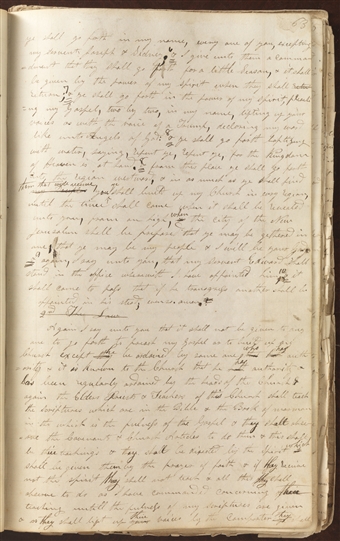 63
ye shall go forth in my name, every one of you, excepting
my servent Joseph & Sidney 6 & I gave unto them a commandment
that they shall go forth for a little season, & it shall
be given by the power of my spirit when they shall return
7 & ye shall go forth in the power of my spirit, preaching
my Gospel, two by two, in my name, lifting up your
voices as with the sound of a trump, declaring my word
like unto Angels of God 8 & ye shall go forth baptizing
with water, saying, repent ye, repent ye, for the Kingdom
of heaven is at hand, & from this place ye shall go forth
into the regions westward, & in as much as ye shall find
them that will receive you ye shall build up my Church in every region
untill the time shall come when it shall be revealed
unto you, from on high, when the city of the New
Jerusalem shall be prepared that ye may be gathered in
one, that ye may be my people & I will be your god
& again, I say unto you, that my servant Edward shall
stand in the office wherewith I have appointed him & it
shall come to pass that if he transgress another shall be
appointed in his stead, even so amen
Again I say unto you that it shall not be given to any
one to go forth to preach my gospel or to build up my
church except he be ordained by some one who has authority
& it is known to the Church that he has authority &
has been regularly ordained by the heads of the Church &
again the Elders Priests & Teachers of this Church shall teach
the scriptures which are in the Bible & the Book of mormon
in the which is the fulness of the Gospel & they shall observe
the Covenants & Church Articles to do them & this shall
be their teachings & they shall be directed by the Spirit which
shall be given them by the prayer of faith & if they receive
not the spirit they shall not teach & all this they shall
observe to do as I have commanded concerning their
teaching untill the fulness of my scriptures are given
& as they shall lift up their voices by the comforter they